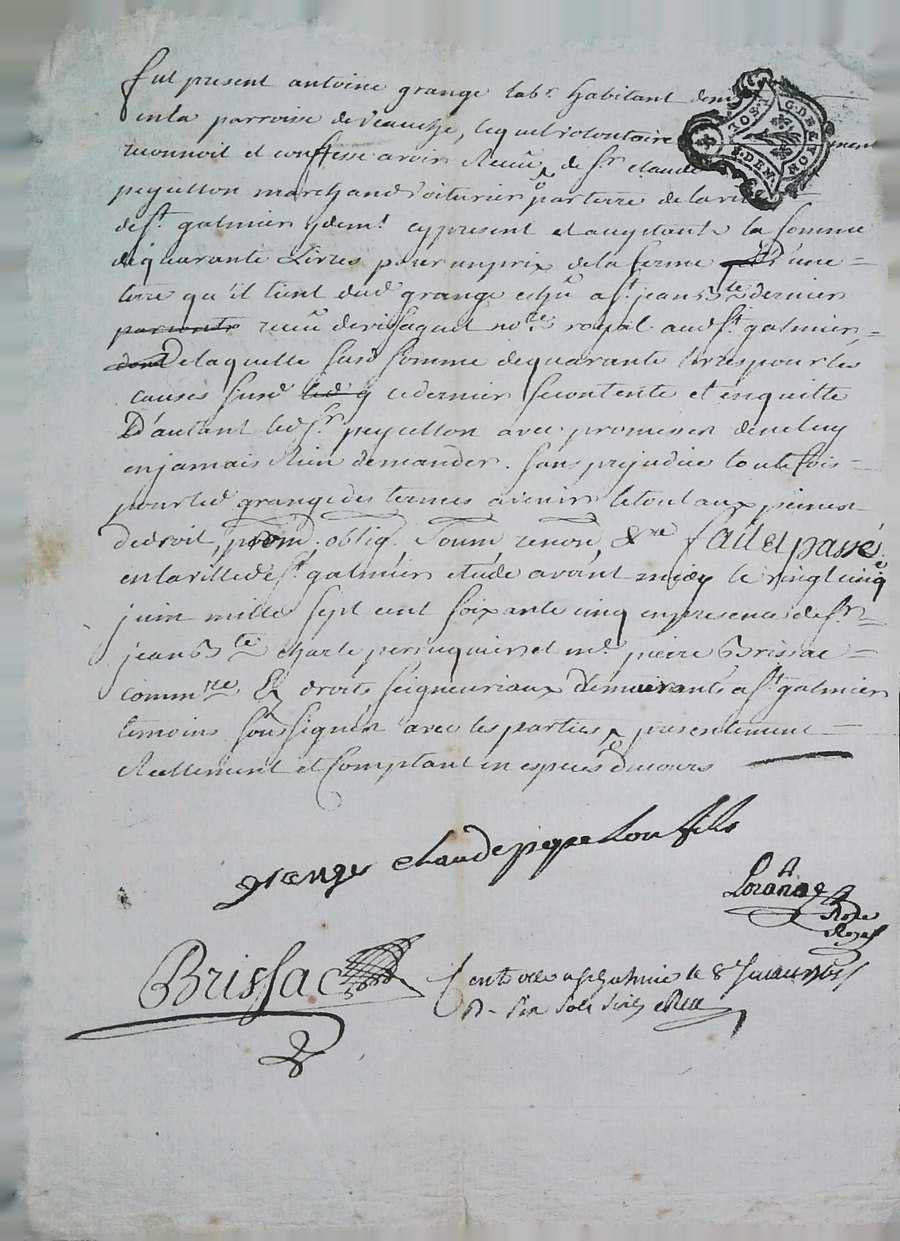 fut present antoine grange lab.r habitant
en la parroisse de veauche, lequel volontairement
reconnoit et confesse avoir Receu de s.r claude
peyzellon marchand voiturier par terre de la
de s.t galmier y dem.t cy present et acceptant la somme
de quarante Livres pour un prix de la ferme d'une =
terre qu'il tient dud. grange echu a s.t jean b.te dernier
receu no.re royal aud s.t galmier =
de laquelle susd somme de quarante livres pour les
causes susd ce dernier se contente et en quitte
D'autant led s.r peyzellon avec promesse de ne luy
en jamais Rien demander. sans prejudice toutefois =
pour led grange des termes avenir le tout aux peines
de droit, prom. oblig. Soum renon, &ra fait et passé
en la ville de s.t galmier etude avant midy le vingt cinq
juin mille sept cent soixante cinq en presence de s.r =
jean b.te charle perruquier et m.e pierre Brissac =
comm.re Es droits seigneuriaux demeurants a s.t galmier
temoins soussignés avec les parties presentement =
Reellement et Comptant en especes du cours
grange claude peyzellon fils
No.re
Royal
Brissac
Controllé a s.t galmier le 8.e
R.